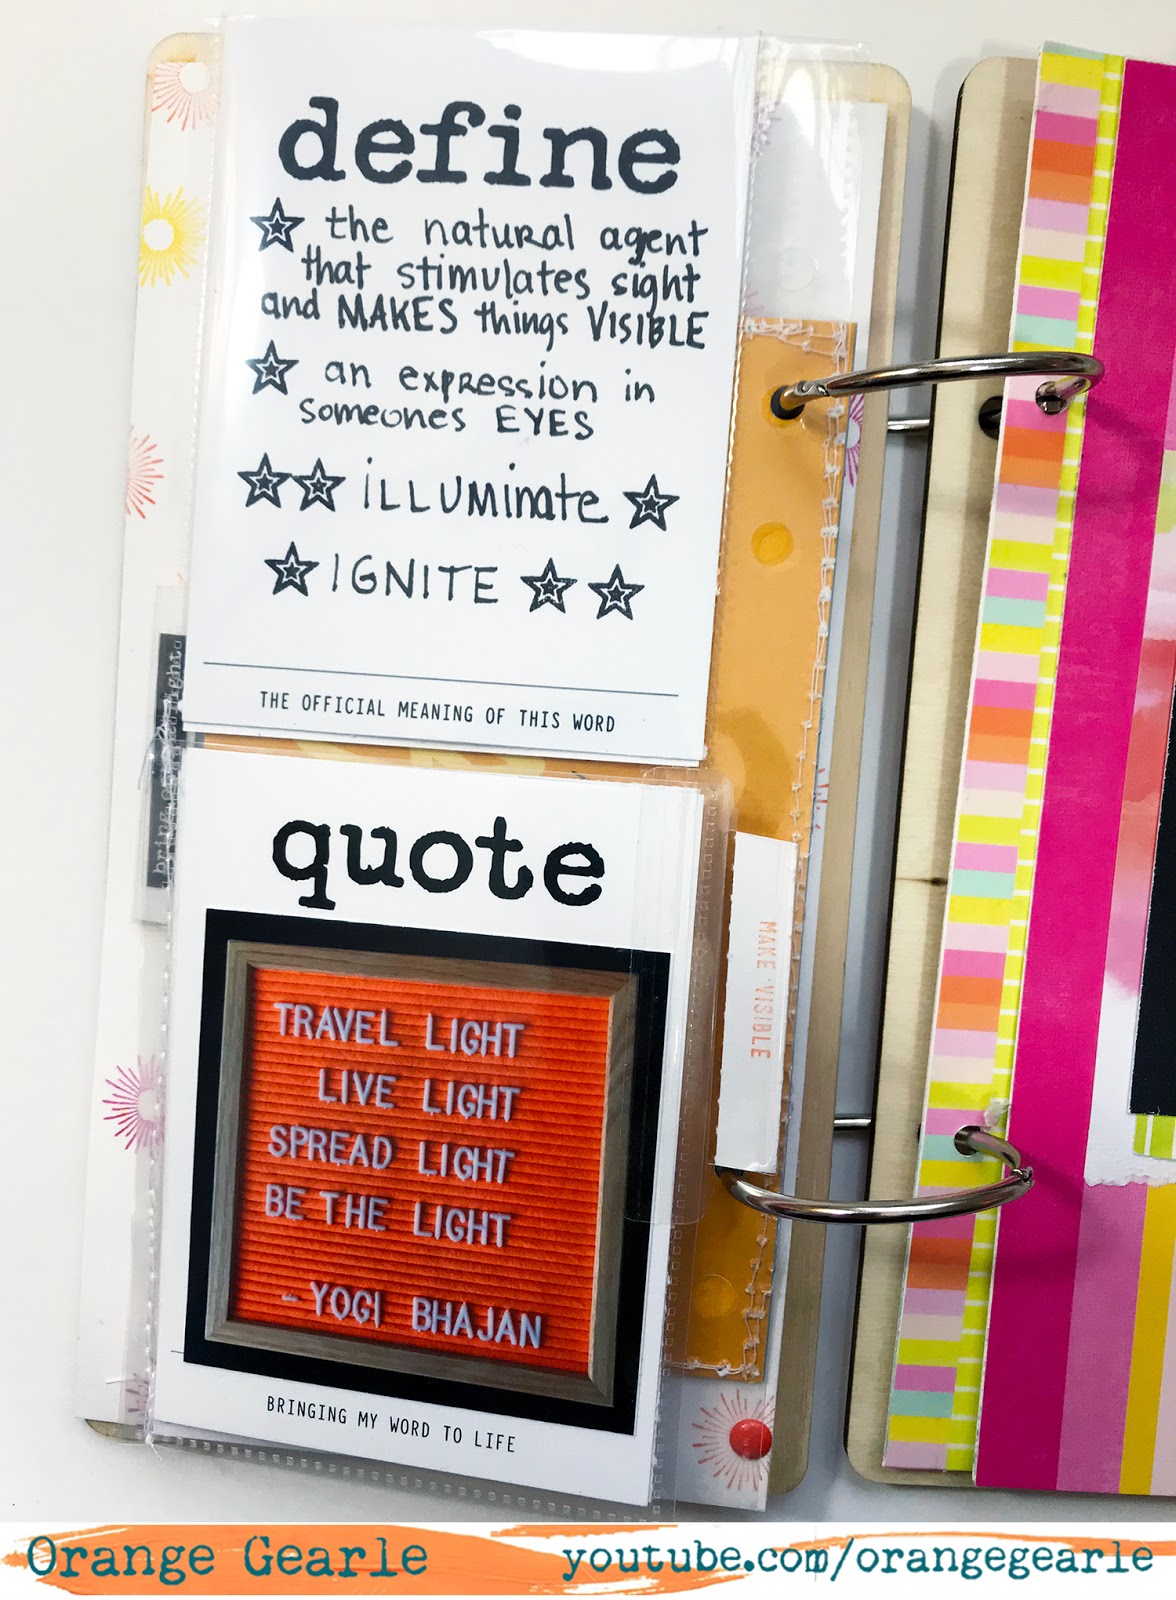 define
the natural agent
that stimulates sight
and MAKES things VISIBLE
an expression in
someones EYES
iLLUminate
IGNITE
THE OFFICIAL MEANING OF THIS WORD
bring
light
quote
TRAVEL LIGHT
LIVE LIGHT
SPREAD LIGHT
BE THE LIGHT
-YOGI BHAJAN
BRINGING MY WORD TO LIFE
MAKE VISIBLE
Orange Gearle
youtube.com/orangegearle